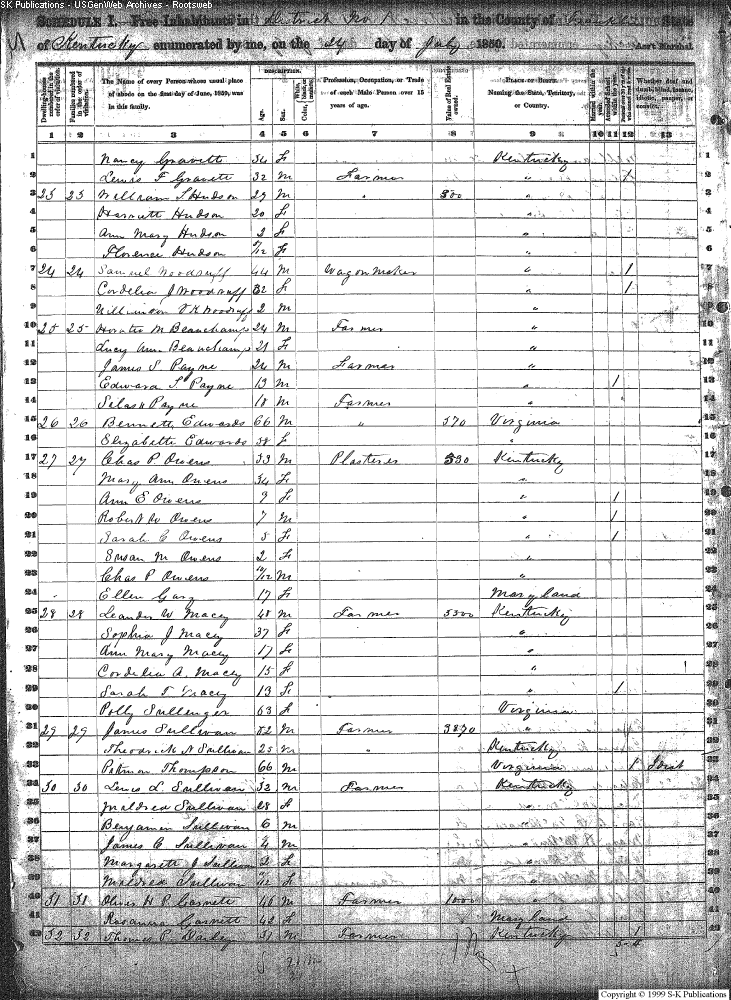 SK Publications - USGenWeb Archives - Rootsweb
SCHEDULE I.—Free Inhabitants in District No in the County of Franklin State
of Kentucky enumerated by me, on the 24 day of July 1850. Ass't Marshal.
DESCRIPTION.
Dwelling-houses numbered in the order of visitation.
Families numbered in the order of visitation.
The Name of every Person whose usual place of abode on the first day of June, 1850, was in this family.
Age.
Sex.
Color, White, black, or mulatto.
Profession, Occupation, or Trade of each Male Person over 15 years of age.
Value of Real Estate owned.
PLACE OF BIRTH. Naming the State, Territory, or Country.
Married within the year.
Whether deaf and dumb, blind, insane, idiotic, pauper, or convict.
1 2 3 4 5 6 7 8 9 10 11 12 13
1 Nancy Gravett 34 F Kentucky 1
2 Lewis F Gravett 32 M Farmer " 1 2
3 23 23 William S Hudson 27 M " 500 " 3
4 Harriett Hudson 20 F " 4
5 Ann Mary Hudson 2 F " 5
6 Florence Hudson /12 F " 6
7 24 24 Samuel Woodruff 44 M Wagon maker " 1 7
8 Cordelia J Woodruff 32 F " 1 8
9 Woodruff 2 M " 9
10 25 25 Horatio M Beauchamp 24 M Farmer " 10
11 Lucy Ann Beauchamp 21 F " 11
12 James S Payne 24 M Farmer " 12
13 Edward S Payne 13 M " 1 13
14 Silas Payne 18 M Farmer " 14
15 26 26 Bennett Edwards 66 M " 570 Virginia 15
16 Elizabeth Edwards 58 F " 16
17 27 27 Chas P. Owens 33 M Plasterer 550 Kentucky 17
18 Mary Ann Owens 34 F " 18
19 Ann E Owens 9 F " 1 19
20 Robert W Owens 7 M " 1 20
21 Sarah C Owens 5 F " 1 21
22 Susan M Owens 2 F " 22
23 Chas P Owens 10/12 M " 23
24 Ellen 17 F Maryland 24
25 28 28 Leander W Macey 48 M Farmer 5500 Kentucky 25
26 Sophia J Macey 37 F " 26
27 Ann Mary Macey 17 F " 27
28 Cordelia A. Macey 15 F " 28
29 Sarah T Macey 13 F " 1 29
30 Polly Sullenger 63 F Virginia 30
31 29 29 James Sullivan 52 M Farmer 3870 " 31
32 Theodrick N Sullivan 25 M " Kentucky 32
33 Thompson 66 M Virginia 1 Idiot 33
34 30 30 Lewis L Sullivan 32 M Farmer Kentucky 34
35 Mildred Sullivan 28 F " 35
36 Benjamin Sullivan 6 M " 36
37 James C Sullivan 4 M " 37
38 Margarett J Sullivan 2 F " 38
39 Mildred Sullivan /12 F " 39
40 31 31 Oliver H P Garnett 40 M Farmer 1000 " 40
41 Rosanna Garnett 42 F Maryland 41
42 32 32 Thomas P. 51 M Farmer Kentucky 1 42
Copyright © 1999 S-K Publications